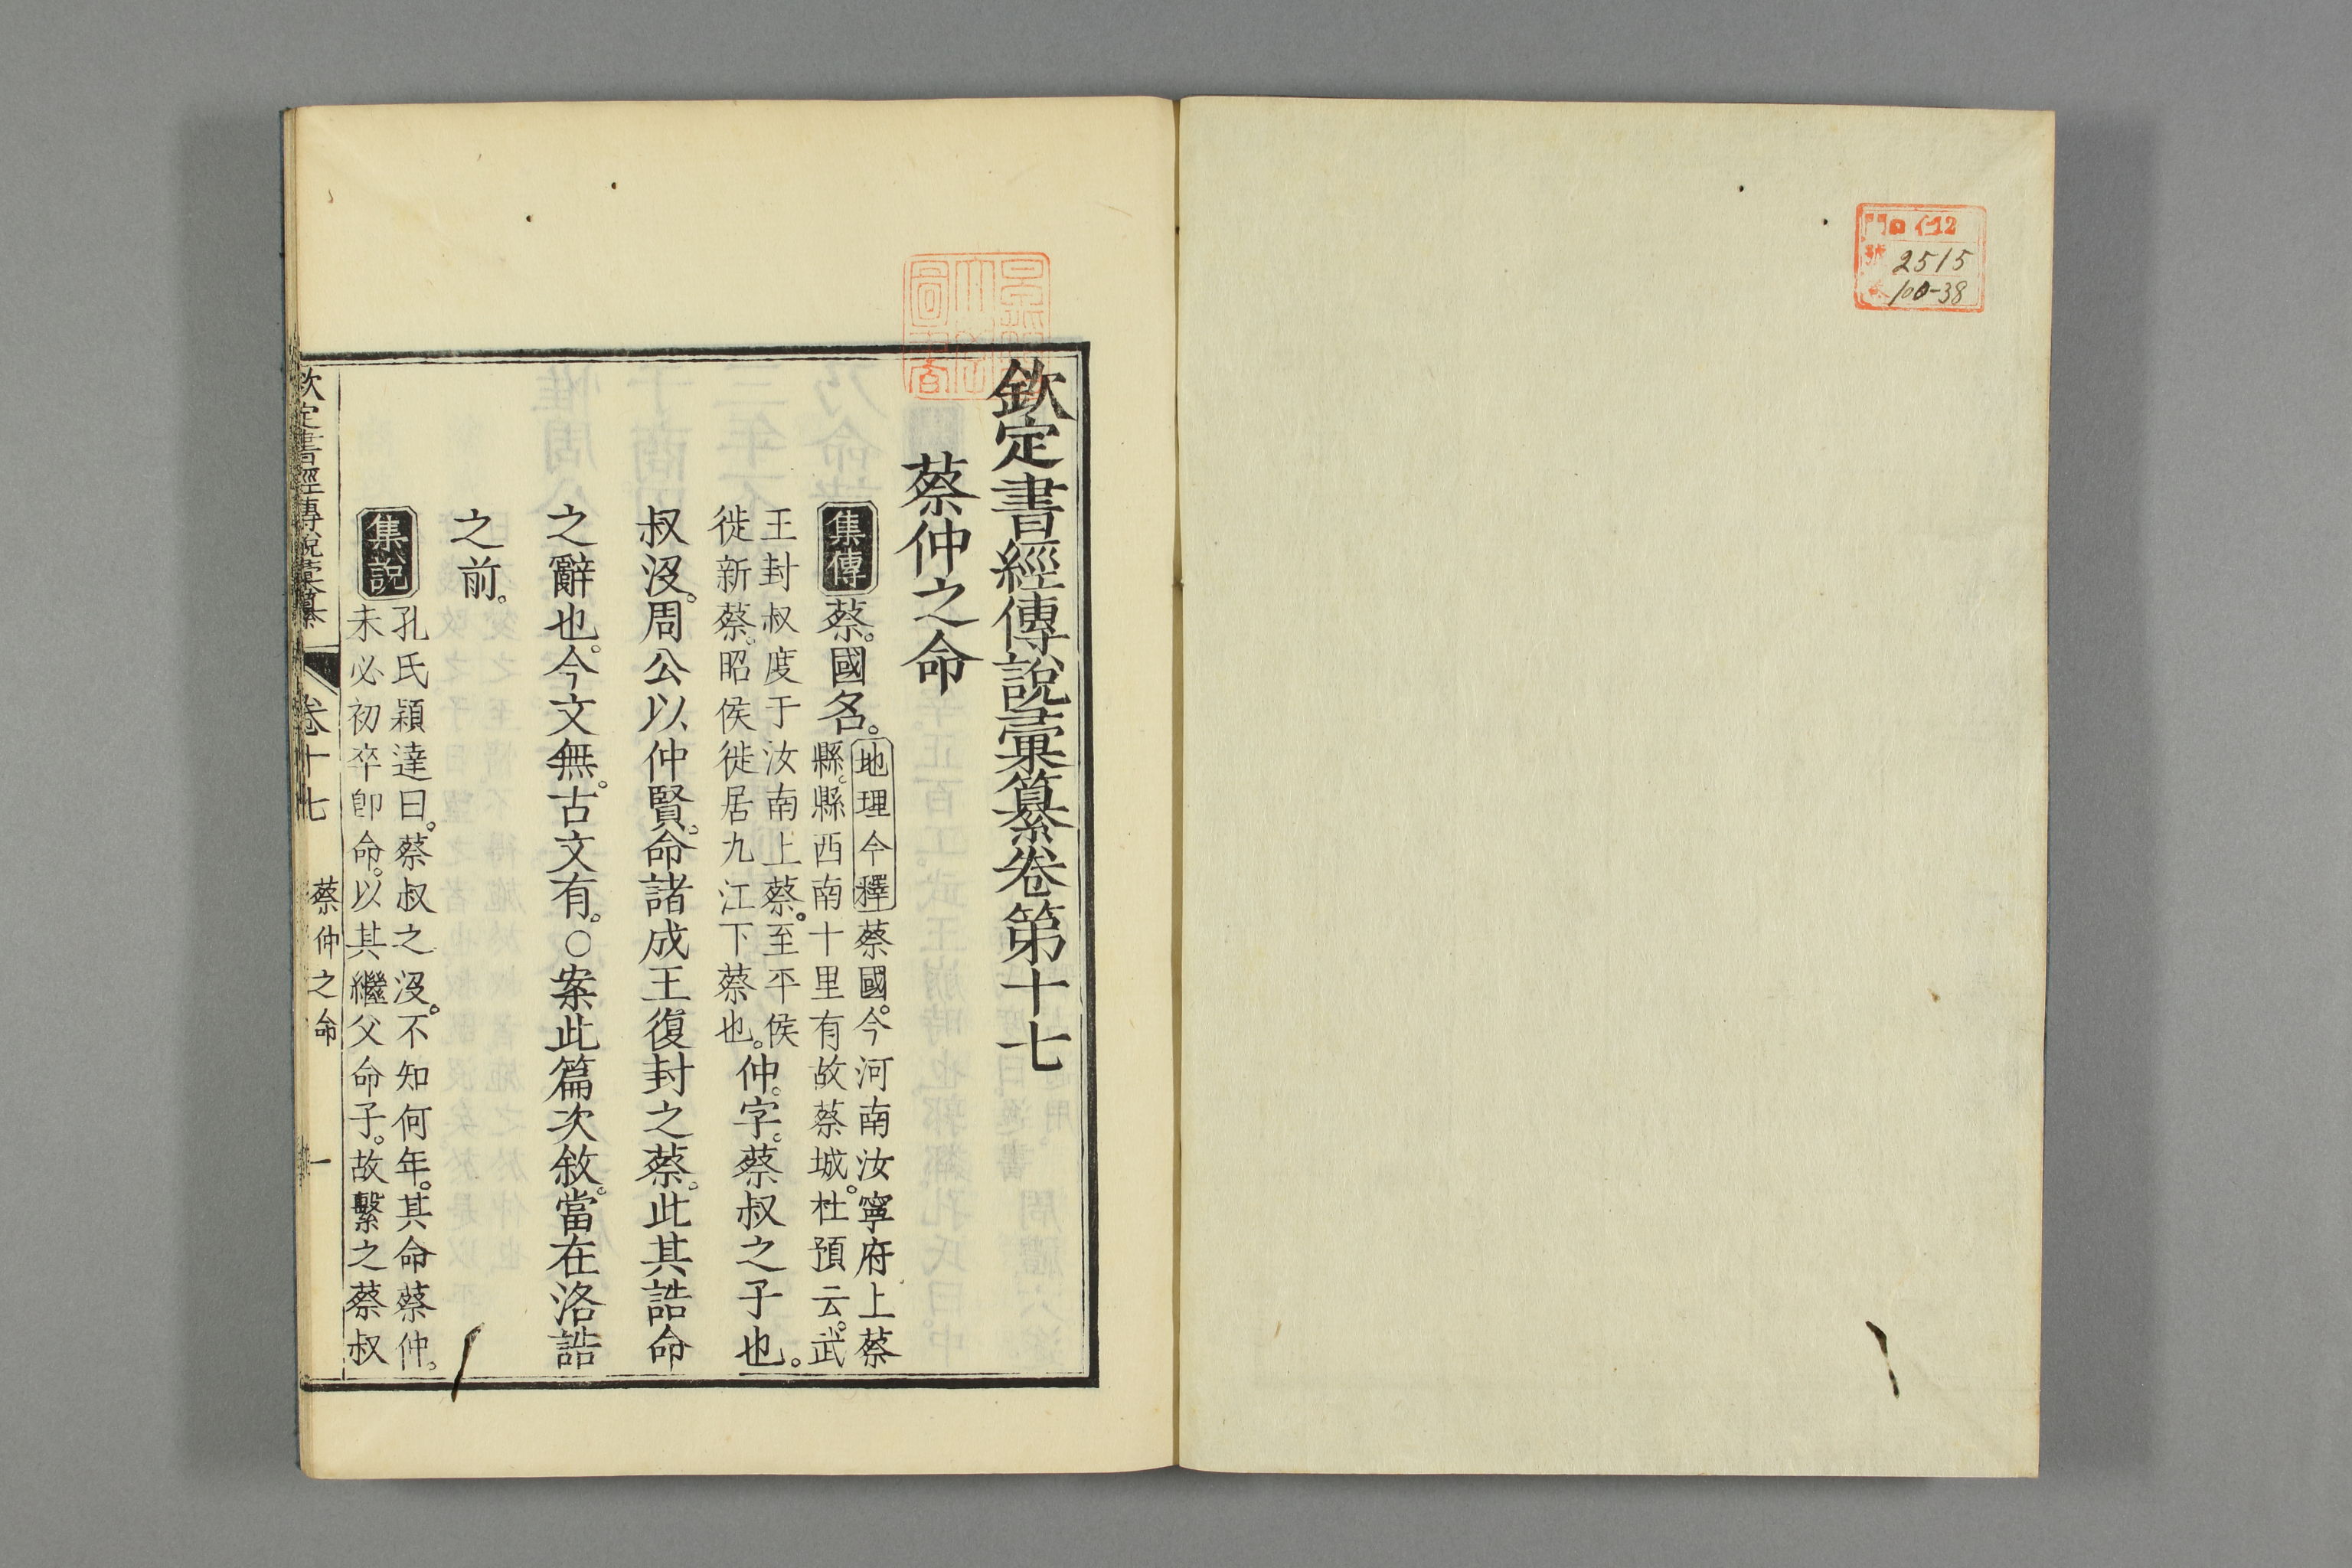 門 ロ 仁12
號 2515
100-38
欽定書經傳說彙纂卷第十七
蔡仲之命
集傳 蔡。國名。地理今釋 蔡國。今河南汝寧府上蔡
縣。縣西南十里有故蔡城。杜預云。武
王封叔度于汝南上蔡。至平侯
徙新蔡。昭侯徙居九江下蔡也。仲。字。蔡叔之子也。
叔沒。周公以仲賢。命諸成王復封之蔡。此其誥命
之辭也。今文無。古文有。○案此篇次敘。當在洛誥
之前。
集說 孔氏穎達曰。蔡叔之沒。不知何年。其命蔡仲。
未必初卒卽命。以其繼父命子。故繫之蔡叔
欽定書經傳說彙纂 卷十七 蔡仲之命 一